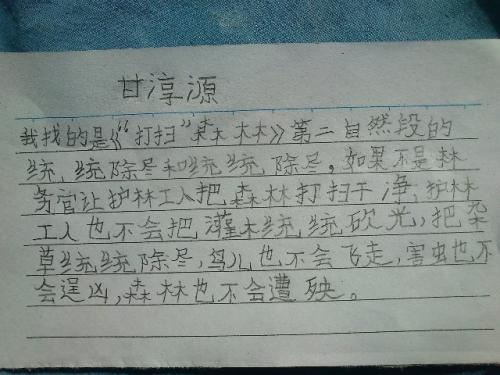 甘淳源
我找的是《“打扫”森林》第二自然段的
统统除尽和统统除尽。如果不是林
务官让护林工人把森林打扫干净，护林
工人也不会把灌木统统砍光，把杂
草统统除尽，鸟儿也不会飞走，害虫也不
会逞凶，森林也不会遭殃。